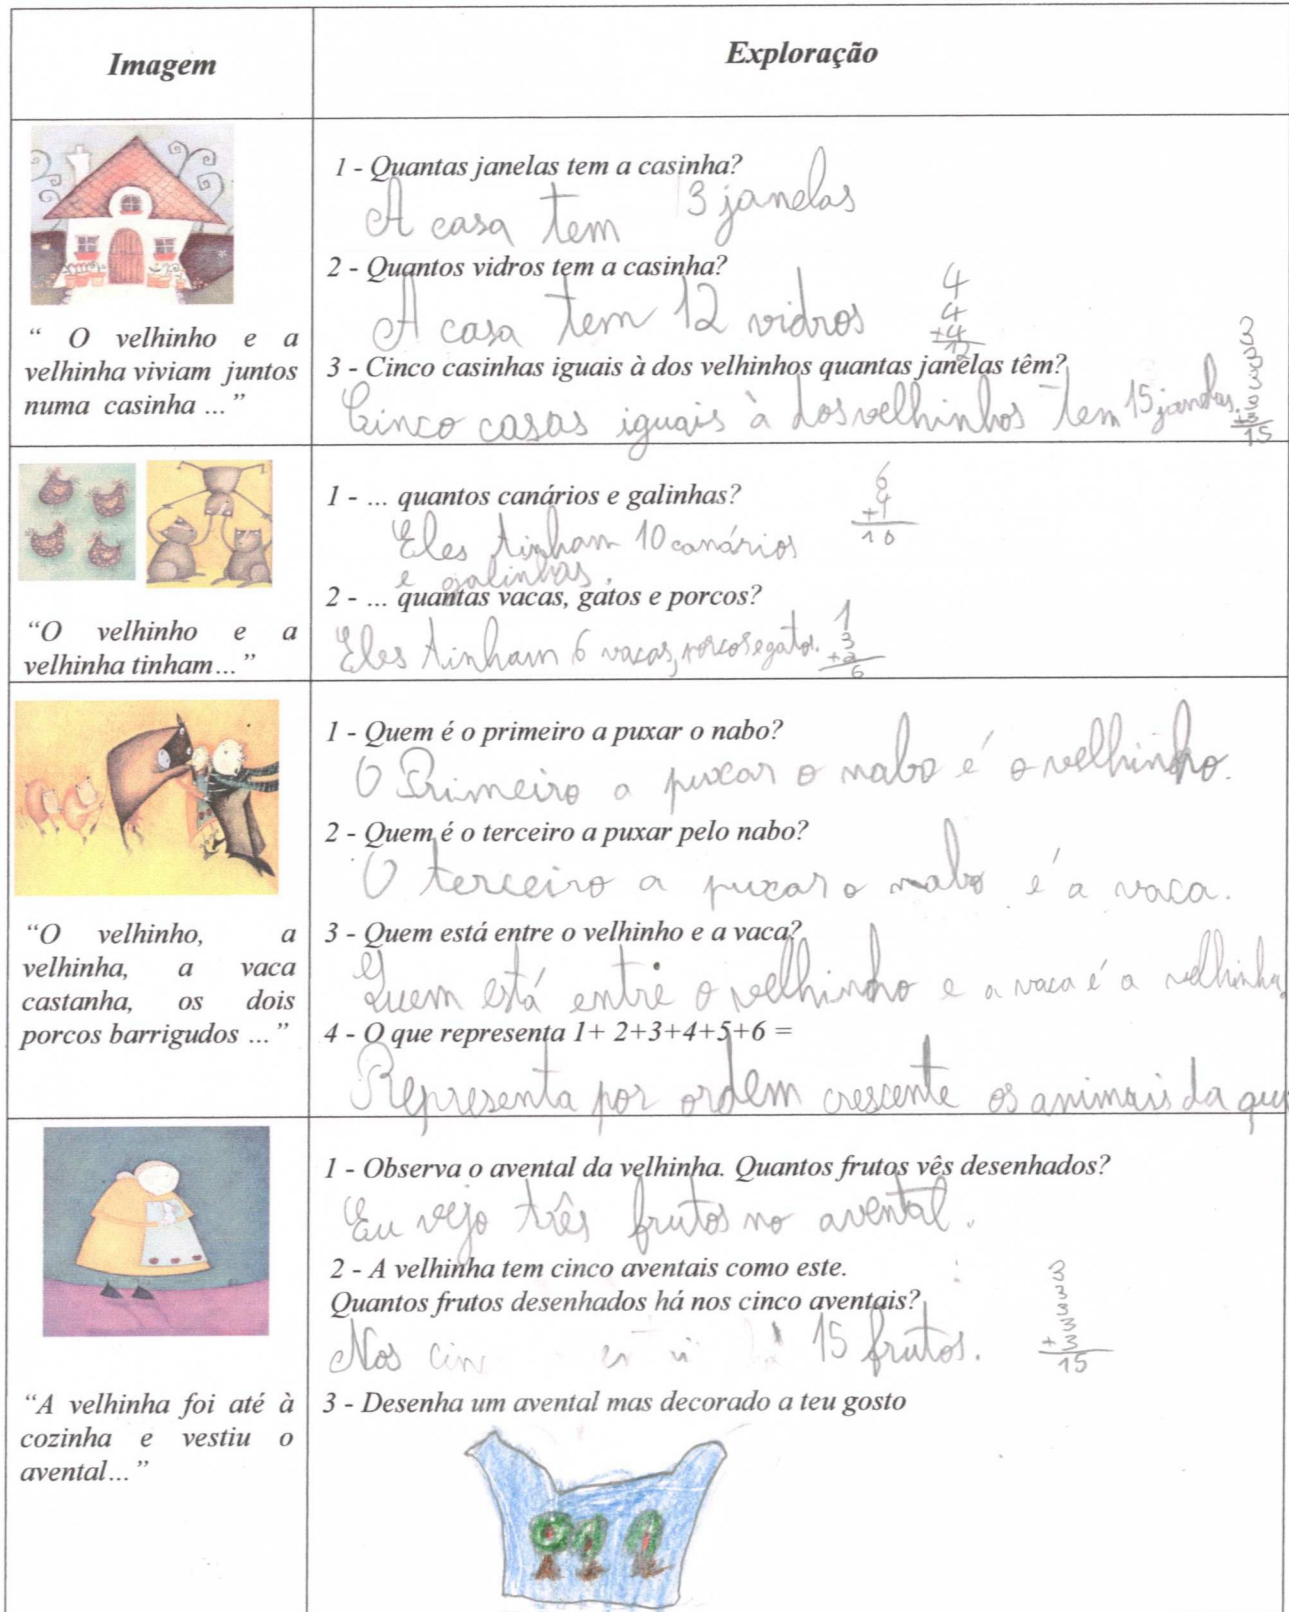 Imagem
Exploração
“ O velhinho e a
velhinha viviam juntos
numa casinha ...”
1 - Quantas janelas tem a casinha?
A casa tem 3 janelas
2 - Quantos vidros tem a casinha?
A casa tem 12 vidros
4
4
+4
12
3 - Cinco casinhas iguais à dos velhinhos quantas janelas têm?
Cinco casas iguais à dos velhinhos tem 15 janelas.
3
3
3
3
+3
15
“O velhinho e a
velhinha tinham...”
1 - ... quantos canários e galinhas?
Eles tinham 10 canários
e galinhas.
6
+4
10
2 - ... quantas vacas, gatos e porcos?
Eles tinham 6 vacas, porcos e gatos.
1
3
+2
6
“O velhinho, a
velhinha, a vaca
castanha, os dois
porcos barrigudos ...”
1 - Quem é o primeiro a puxar o nabo?
O Primeiro a puxar o nabo é o velhinho.
2 - Quem é o terceiro a puxar pelo nabo?
O terceiro a puxar o nabo é a vaca.
3 - Quem está entre o velhinho e a vaca?
Quem está entre o velhinho e a vaca é a velhinha
4 - O que representa 1+ 2+3+4+5+6 =
Representa por ordem crescente os animais da
“A velhinha foi até à
cozinha e vestiu o
avental...”
1 - Observa o avental da velhinha. Quantos frutos vês desenhados?
Eu vejo três frutos no avental.
2 - A velhinha tem cinco aventais como este.
Quantos frutos desenhados há nos cinco aventais?
Nos há 15 frutos.
3
3
3
3
+3
15
3 - Desenha um avental mas decorado a teu gosto